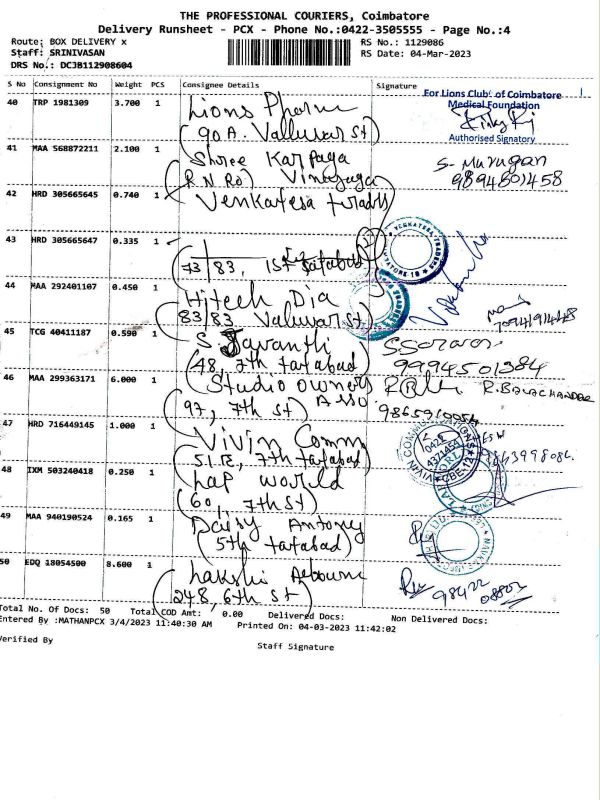 THE PROFESSIONAL COURIERS, Coimbatore
Delivery Runsheet - PCX - Phone No.:0422-3505555 - Page No.:4
Route: BOX DELIVERY x
RS No.: 1129086
Staff: SRINIVASAN
RS Date: 04-Mar-2023
DRS No.: DCJB112908604
S No Consignment No Weight PCS Consignee Details Signature
For Lions Club of Coimbatore
Medical Foundation
Authorised Signatory
40 TRP 1981309 3.700 1 Lions Pharm
(90 A. Valluvar St)
41 MAA 568872211 2.100 1 Shree Karpaga
(R N Ro) Vinayaga
S. Murugan
9894801458
42 HRD 305665645 0.740 1 Venkatesa traders
43 HRD 305665647 0.335 1
(73/83, 1st tatabad)
44 MAA 292401107 0.450 1 Hitech Dia
(83/83 Valuvar St)
45 TCG 40411187 0.590 1 S. Javanthi
(48, 7th tatabad)
9994501384
46 MAA 299363171 6.000 1 (Studio owners
Asso
97, 7th St)
R. BALACHANDAR
47 HRD 716449145 1.000 1 Vivin Comm
(51.E, 7th tatabad)
48 IXM 503240418 0.250 1 Lap world
(60, 7th St)
49 MAA 940190524 0.165 1 Daisy Antony
(5th tatabad)
50 EDQ 18054500 8.600 1 Lakshi
(248, 6th St)
98422
08802
Total No. Of Docs: 50 Total COD Amt: 0.00 Delivered Docs: Non Delivered Docs:
Entered By :MATHANPCX 3/4/2023 11:40:30 AM Printed On: 04-03-2023 11:42:02
Verified By
Staff Signature